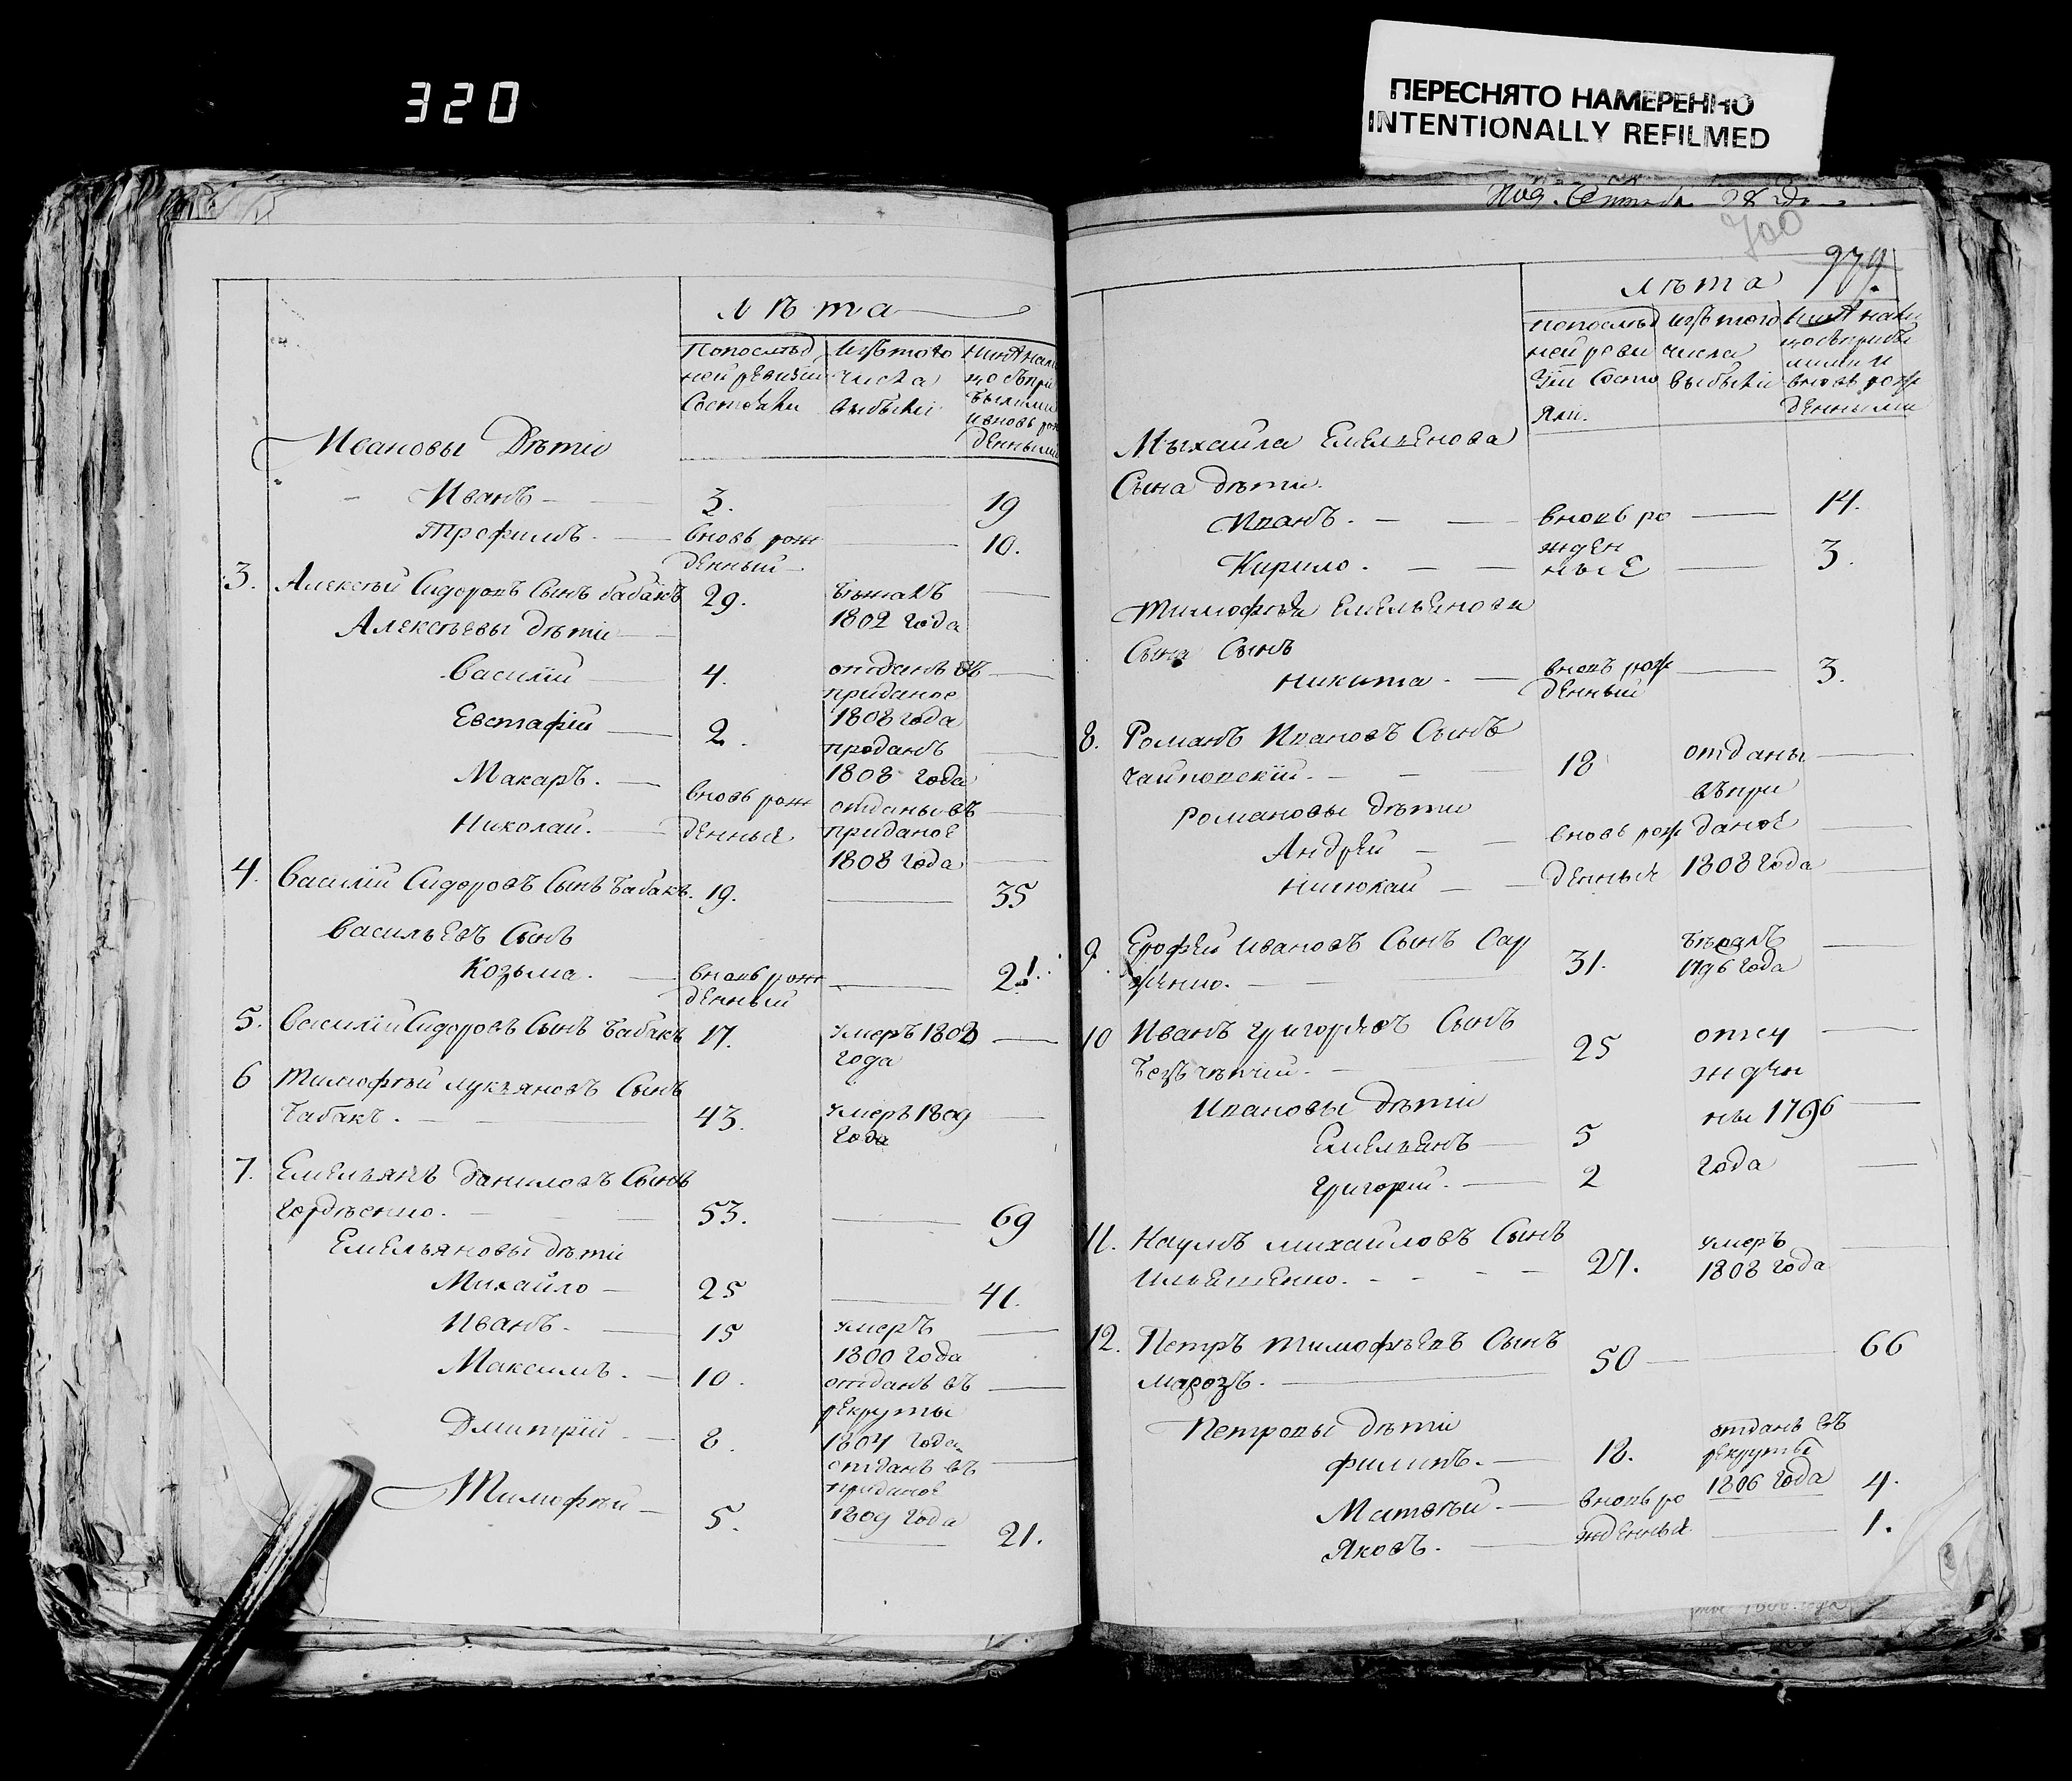 320
ПЕРЕСНЯТО НАМЕРЕННО
INTENTIONALLY REFILMED
Лѣта
Попослѣд
ней ревизии
Состояли
Изъ того
числа
выбыли
Нынѣ нали
цо съпри
былими
ивновь рож
денными
Ивановы Дѣти
Иванъ 3. 19
Трофимъ вновь рож
денный 10.
3. Алексѣй Сидоровъ Сынъ бабакъ 29. бѣжалъ
1802 года
Алексѣевы дѣти
Василий 4. отданъ въ
приданое
1808 года
Евстафий 2. проданъ
1808 года
Макаръ. вновь рож отданы въ
Николай. денные приданое
1808 года
4. Василий Сидоровъ Сынъ бабакъ. 19. 35
Васильевъ Сынъ
Козьма. вновь рож
денный 2.
5. Василий Сидоровъ Сынъ бабакъ 17. умеръ 1803
года
6 Тимофѣй лукьяновъ Сынъ
бабакъ. 43. умеръ 1809
года
7. Емельянъ даниловъ Сынъ
Гордѣенко. 53. 69
Емельяновы дѣти
Михайло 25 41.
Иванъ. 15 умеръ
1800 года
Максимъ. 10. отданъ въ
рекруты
1804 года
Дмитрий 8. отданъ въ
приданое
1809 года
Тимофѣй 5. 21.
700
979.
Лѣта
попослѣд
ней реви
зии Состо
яли.
изъ того
числа
выбыли
нынѣ нали
цо съприбы
лими и
вновь рож
денными
Мыхайла Емельенова
Сына дѣти.
Иванъ. вновь ро 14.
жден
Кирило. ные 3.
Тимофѣя Емельенова
Сына Сынъ
Никита. вновь рож
денный 3.
8. Романъ Ивановъ Сынъ
Чайповский. 18 отданы
Романовы дѣти въпри
Андрей вновь рож даное
Николай денные 1808 года
9. Ерофей Ивановъ Сынъ Сер
женко. 31. бѣжалъ
1796 года
10 Иванъ григорьевъ Сынъ
25 отсу
Ивановы дѣти ждѣн
Емельянъ 5 ны 1796
Григорий. 2 года
11. Наумъ михайловъ Сынъ
Ильешенко. 27. умеръ
1808 года
12. Петръ тимофѣевъ Сынъ
марозъ. 50 66
Петровы дѣти
филипъ. 18. отданъ въ
рекруты
1806 года
Матвѣй. вновь ро 4.
Яковъ. жденные 1.